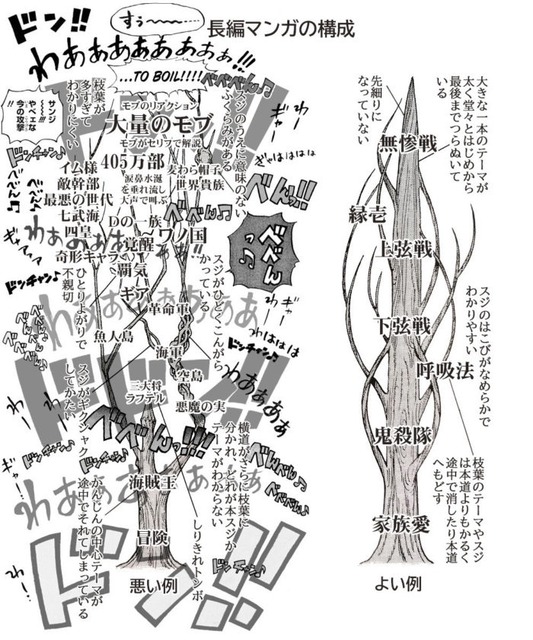 長編マンガの構成
ドン!!
すぅ〜〜〜
わあああああああぁぁ!!
...TO BOIL!!!!
べべべん♪
サンジやべェな今の攻撃
枝葉が多すぎてわかりにくい
モブのリアクション
大量のモブ
モブがセリフで解説
405万部
涙鼻水涎を垂れ流し大声で叫ぶ
麦わら帽子
世界貴族
スジのうえに意味のないふくらみがある
イム様
敵幹部
最悪の世代
七武海
四皇
Dの一族
ワノ国
奇形キャラ
覚醒
覇気
ギア
革命軍
ひとりよがりで不親切
スジがひどくこんがらかっている
魚人島
海軍
空島
三大将
ラフテル
悪魔の実
スジがギクシャクしてかたい
横道がさらに枝葉に分かれ、どれが本スジかテーマがわからない
海賊王
かんじんの中心テーマが途中でそれてしまっている
しりきれトンボ
冒険
悪い例
ドンチャン♪
べべん!!
ドドン!!
大きな一本のテーマが太く堂々とはじめから最後までつらぬいている
先細りになっていない
無惨戦
縁壱
上弦戦
スジのはこびがなめらかでわかりやすい
下弦戦
呼吸法
鬼殺隊
枝葉のテーマやスジは本道よりもかるく途中で消したり本道へもどす
家族愛
よい例